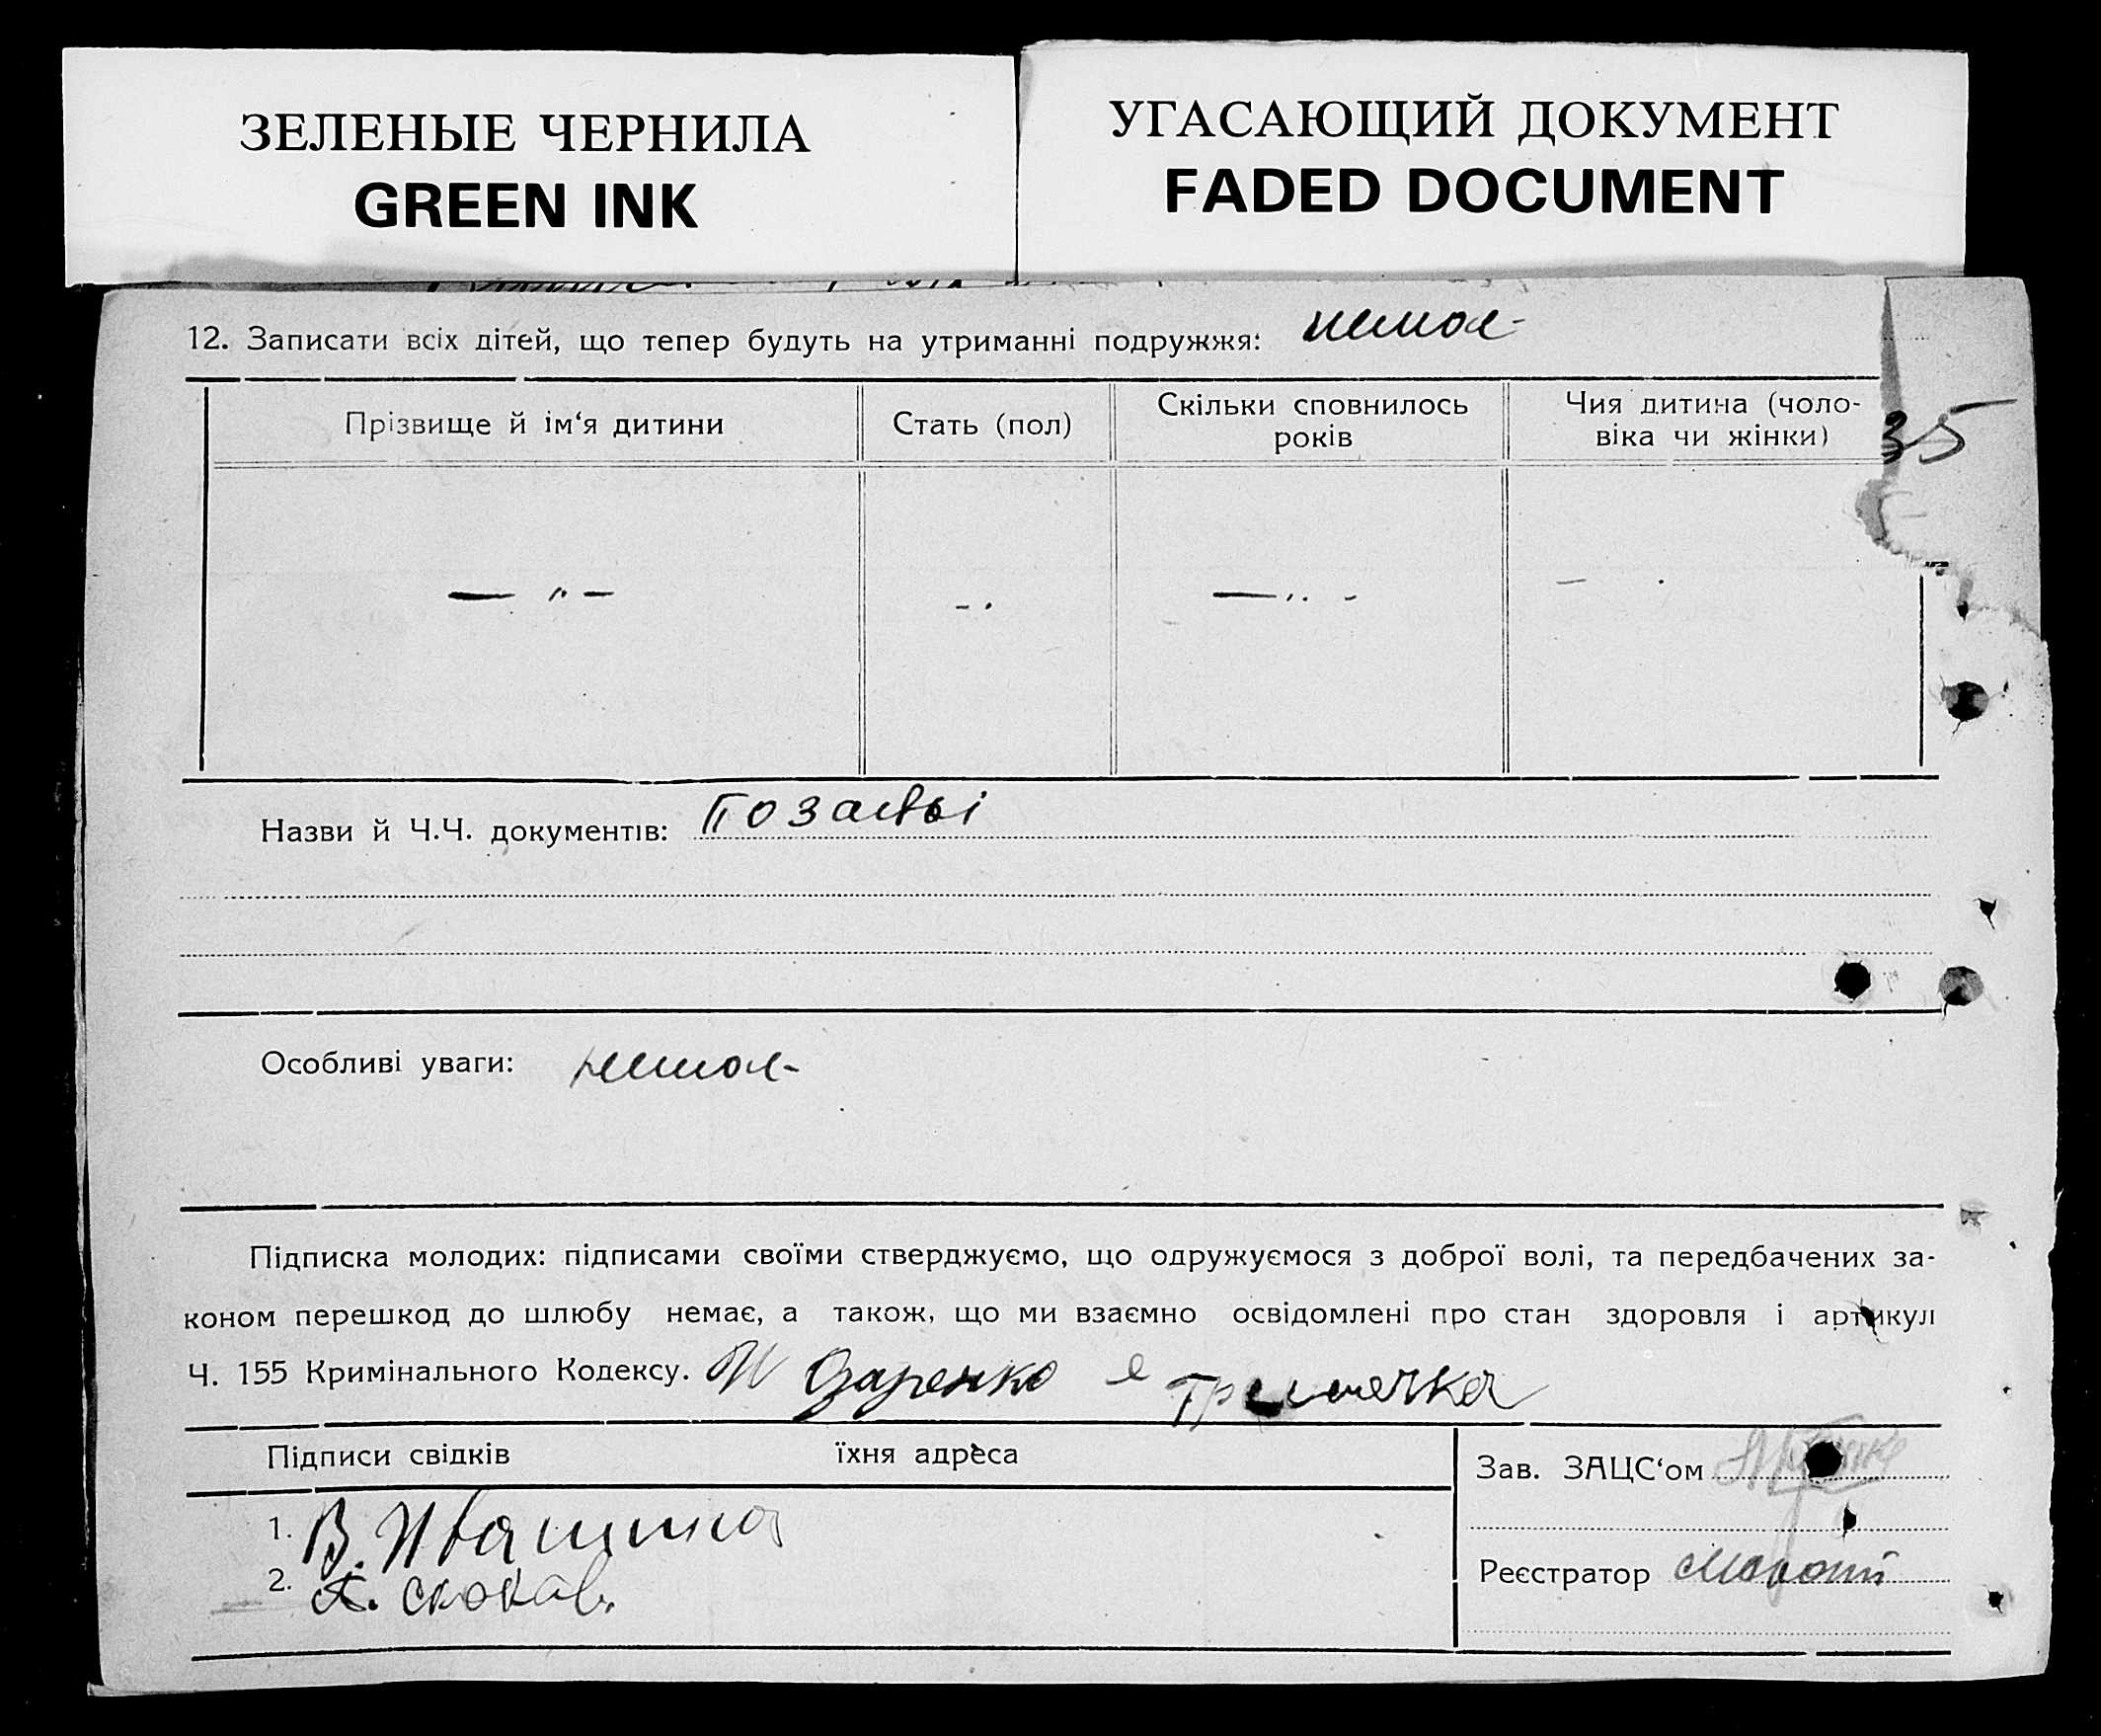 ЗЕЛЕНЫЕ ЧЕРНИЛА
GREEN INK
УГАСАЮЩИЙ ДОКУМЕНТ
FADED DOCUMENT
12. Записати всіх дітей, що тепер будуть на утриманні подружжя: немає
Прізвище й ім‘я дитини
Стать (пол)
Скільки сповнилось
років
Чия дитина (чоло-
віка чи жінки)
35
— „ —
Назви й Ч.Ч. документів:
Особливі уваги: немає
Підписка молодих: підписами своїми стверджуємо, що одружуємося з доброї волі, та передбачених за-
коном перешкод до шлюбу немає, а також, що ми взаємно освідомлені про стан здоровля і артикул
Ч. 155 Кримінального Кодексу.
Підписи свідків
їхня адреса
Зав. ЗАЦС‘ом
1. В. Ивашина
2.
Реєстратор